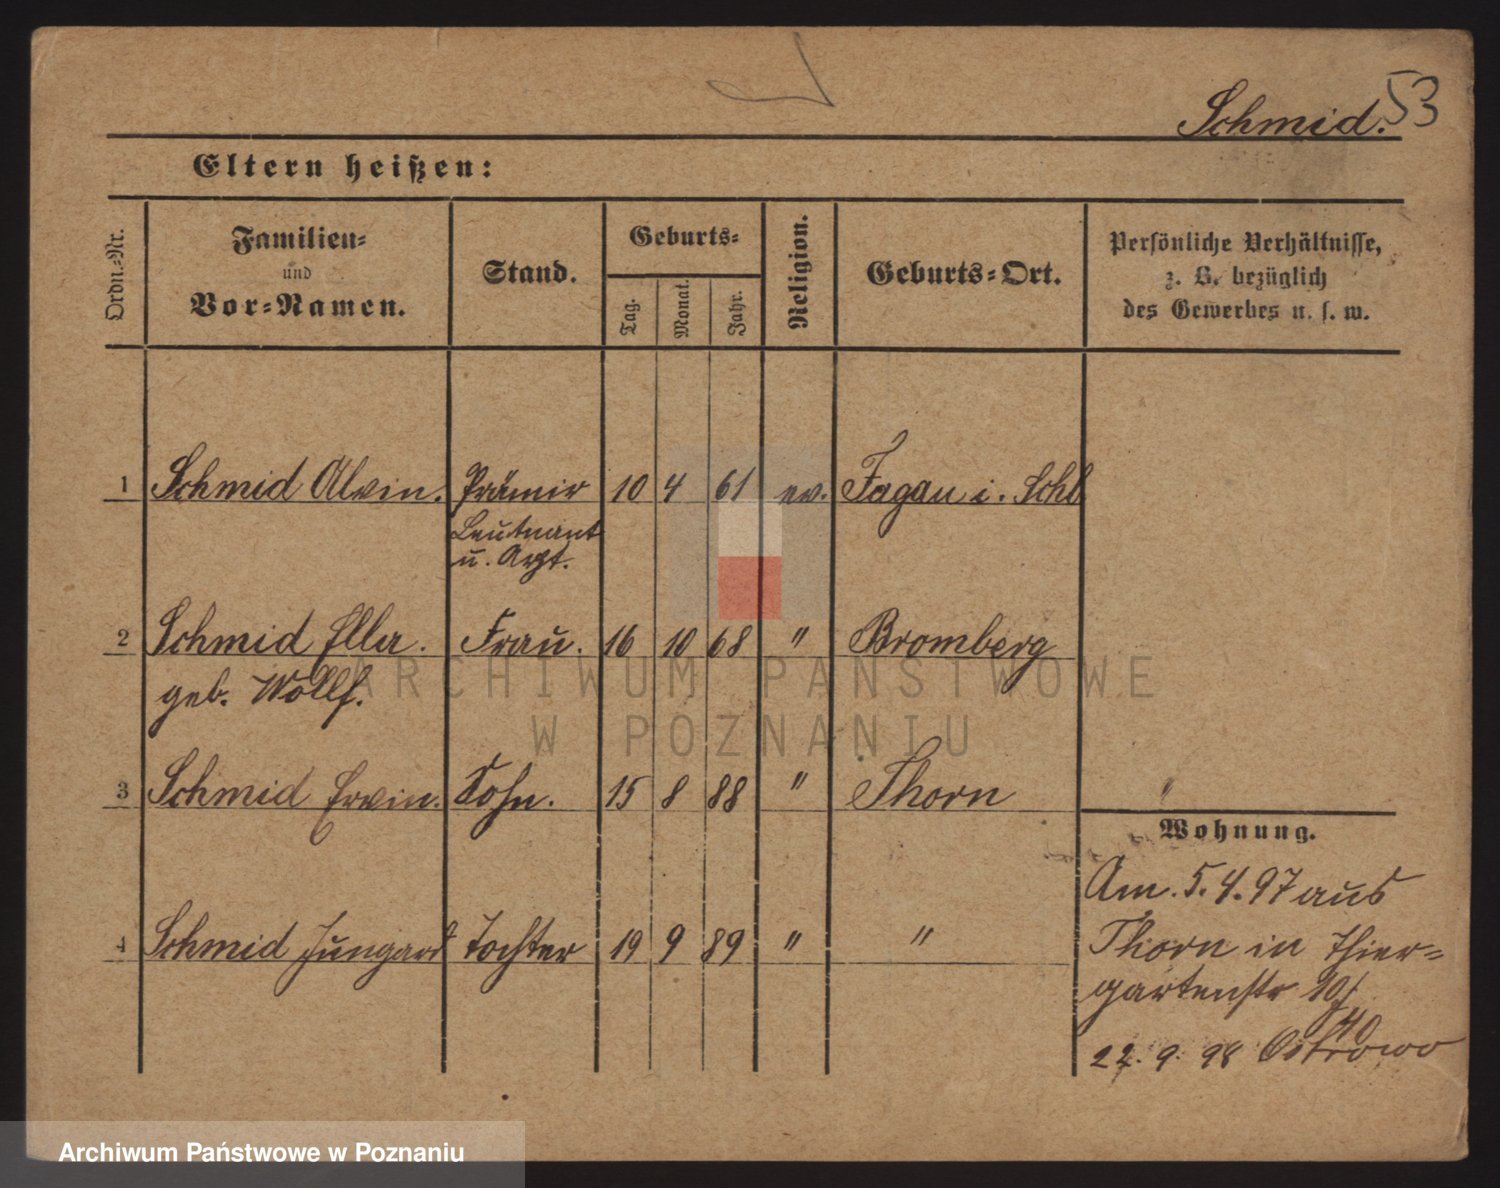 53
Schmid.
Eltern heißen:
Ordn.-Nr.
Familien-
und
Vor-Namen.
Stand.
Geburts-
Tag.
Monat.
Jahr.
Religion.
Geburts-Ort.
Persönliche Verhältnisse,
z. B. bezüglich
des Gewerbes u. s. w.
1 Schmid Alvin. Prämir 10 4 61 ev. Sagan i. Schl
Leutnant
u. Arzt.
2 Schmid Ella. Frau. 16 10 68 " Bromberg
geb. Wollf.
ARCHIWUM PAŃSTWOWE
W POZNANIU
3 Schmid Erwin. Sohn. 15 8 88 " Thorn "
Wohnung.
Am. 5.4.97 aus
4 Schmid Irmgard Tochter 19 9 89 " "
Thorn in Thier=
gartenstr 10/
40
22. 9. 98 Ostrowo
Archiwum Państwowe w Poznaniu